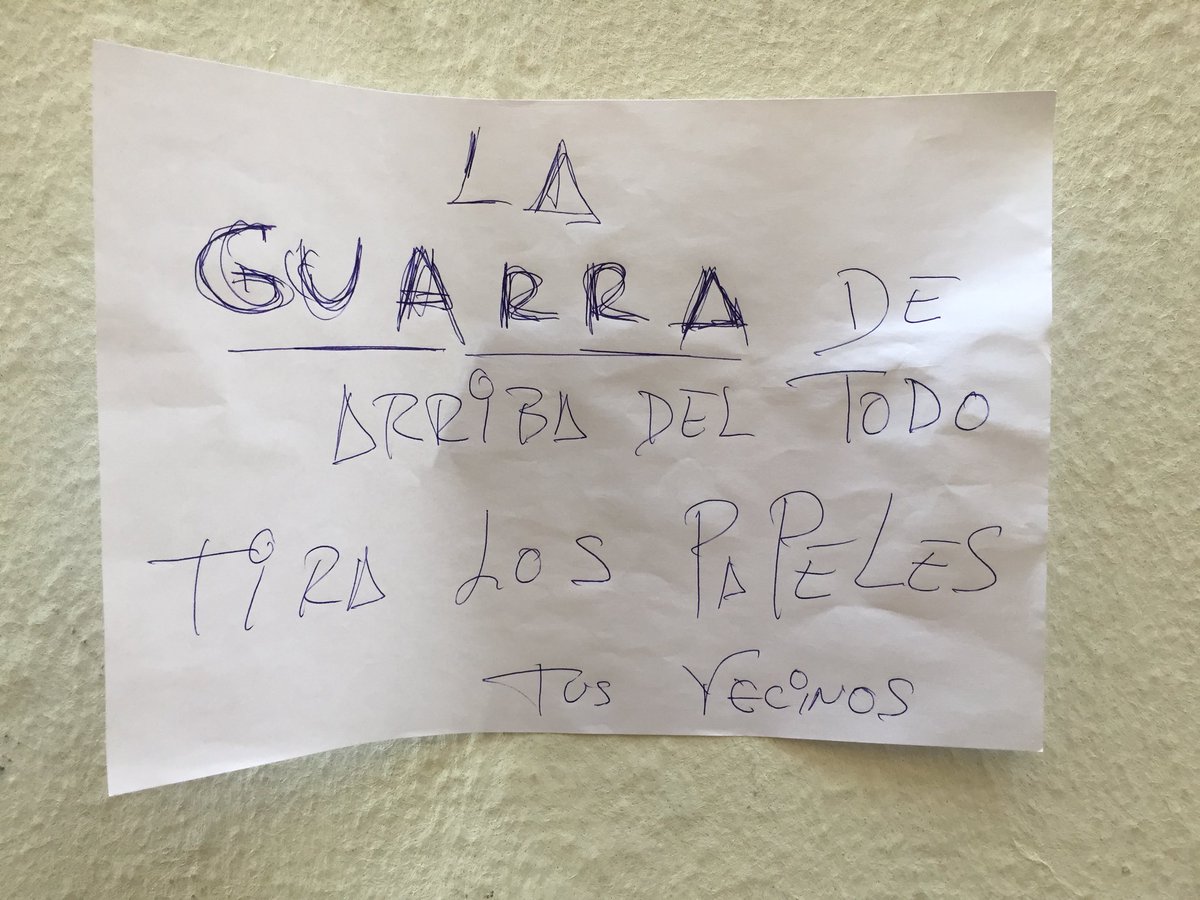 LA
GUARRA DE
ARRiBA DEL TODO
TiRA LOS PAPELES
TUS VECiNOS